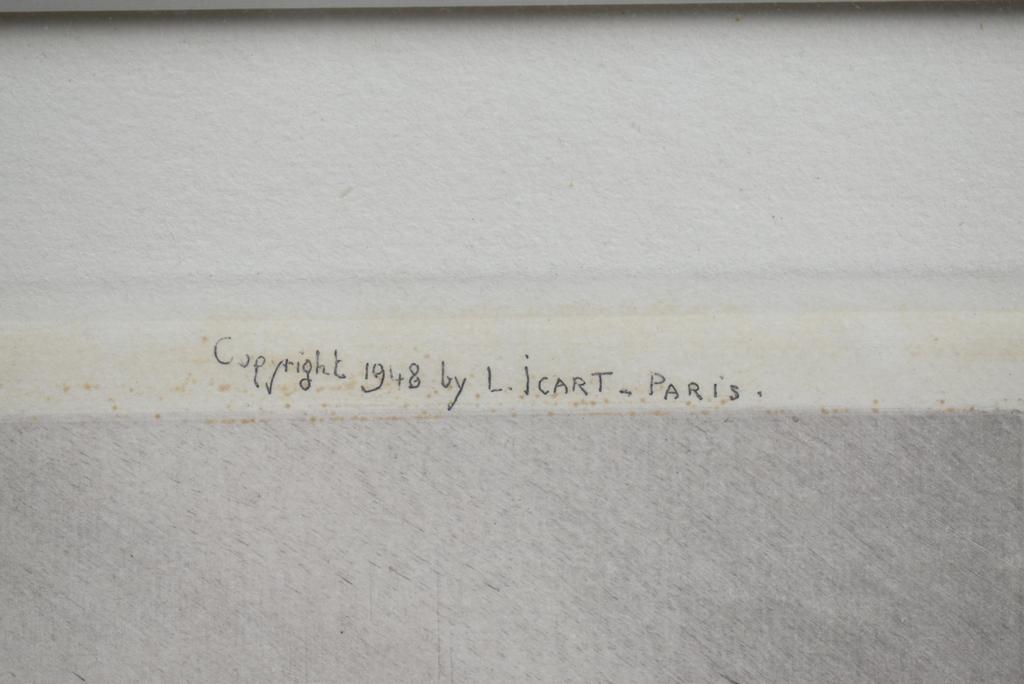 Copyright 1948 by L. ICART - PARIS.